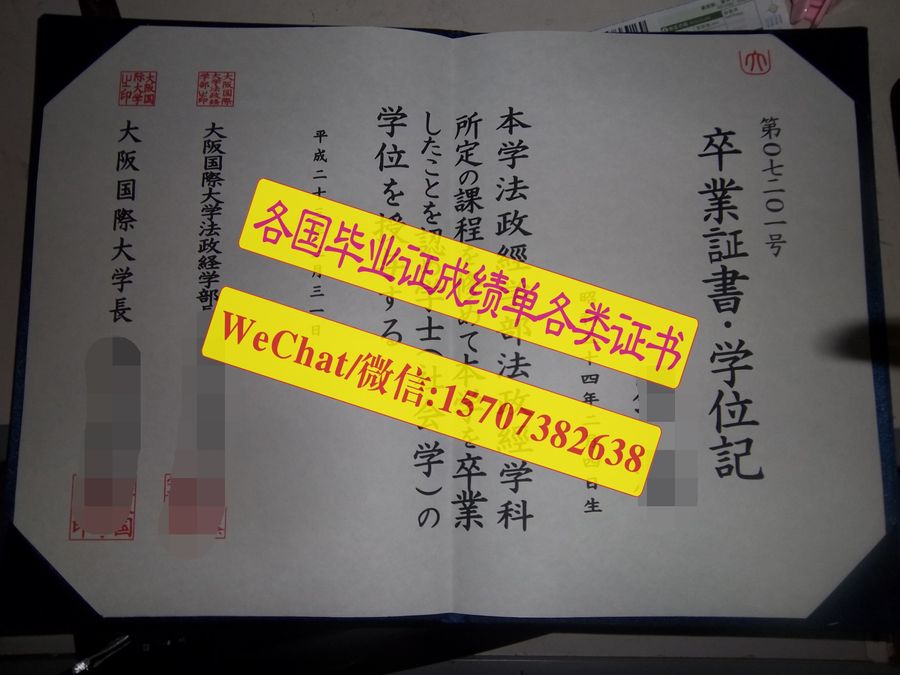 第〇七二〇一号
卒業証書・学位記
昭 十四年二 四日生
本学法政經 部法政經学科
所定の課程を めて本 を卒業
したことを認 学士(社会学)の
学位を授与する
平成二十 月三一日
大阪国際大学法政经学部
大阪国際大学長
大阪国際大学法政経学部之印
大阪国際大学之印
各国毕业证成绩单各类证书
WeChat/微信:15707382638